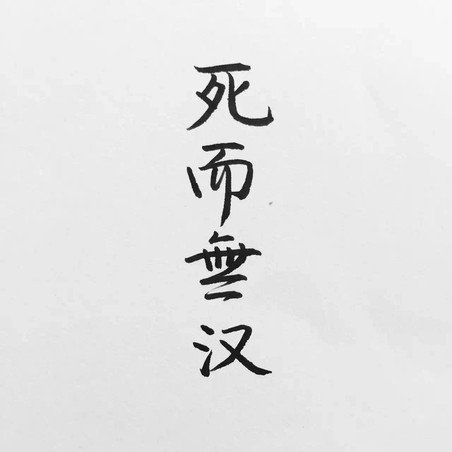 死而無汉